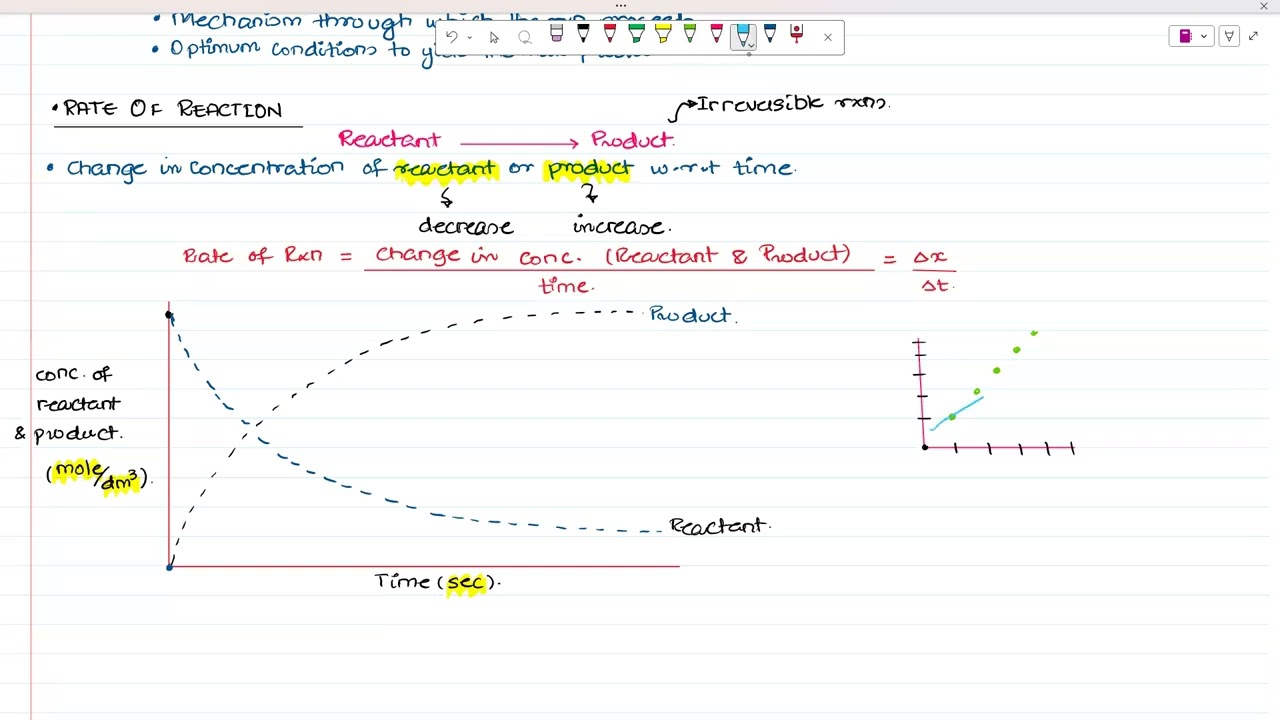 • Mechanism through which the rxn proceeds
• Optimum conditions to yield the
• RATE OF REACTION
Irreversible rxns.
Reactant → Product.
• Change in concentration of reactant or product w.r.t time.
decrease increase.
Rate of Rxn = Change in conc. (Reactant & Product) / time. = Δx / Δt.
Product.
conc. of
reactant
& product.
(mole/dm³).
Reactant.
Time (sec).